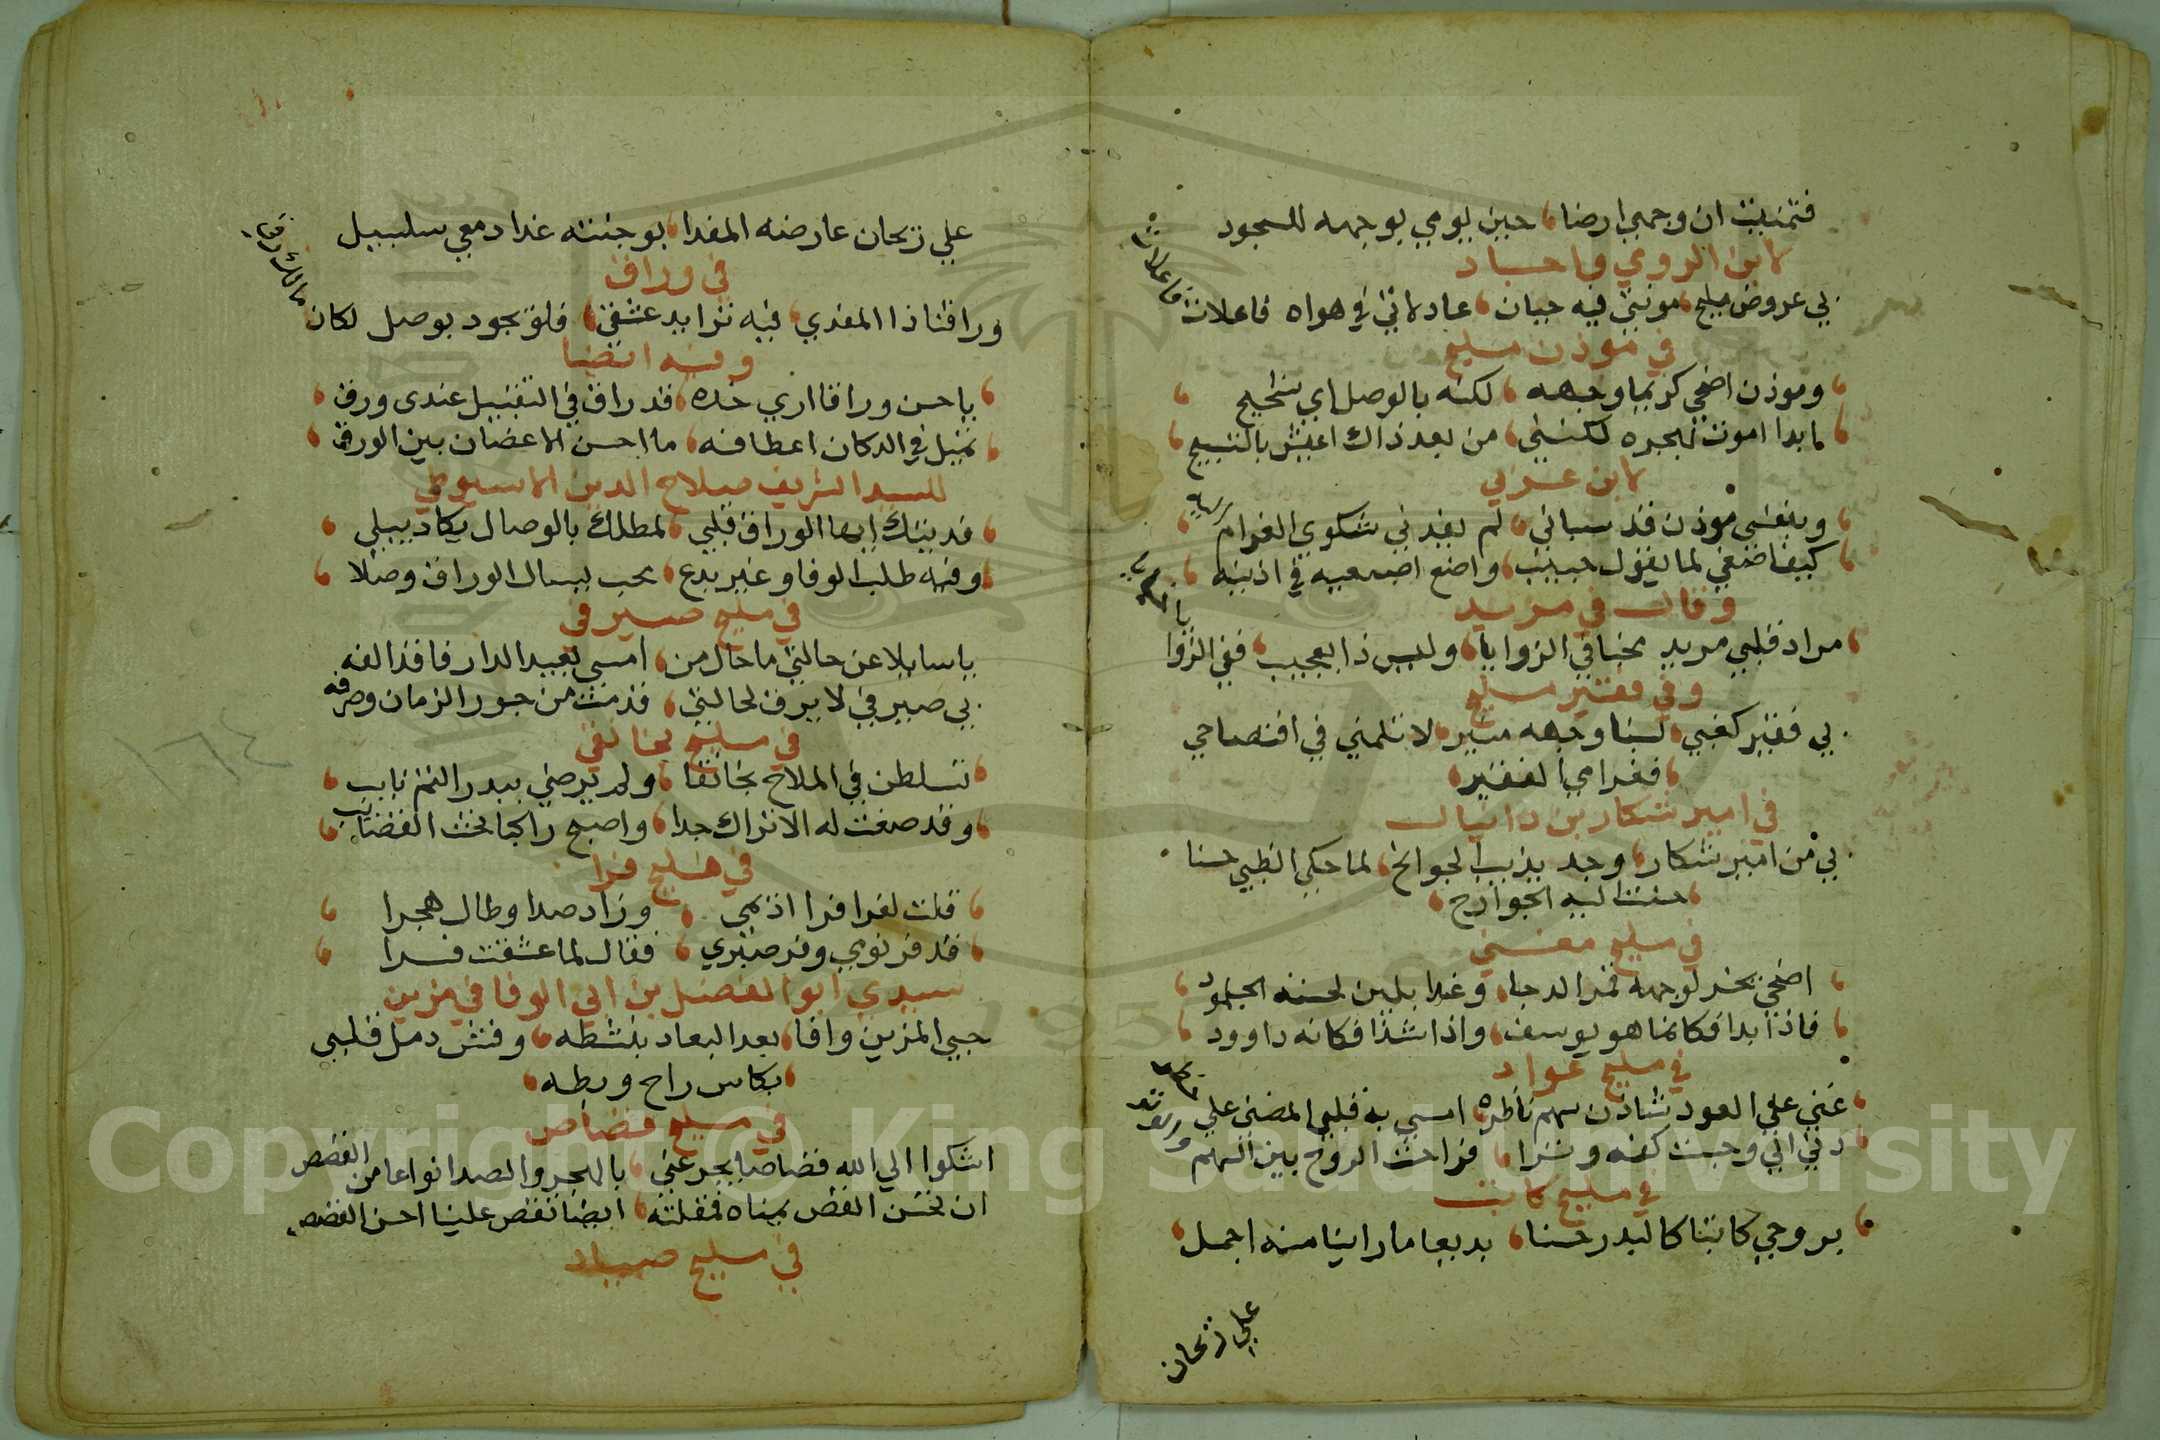 فتمنيت ان وجهي ارضا حين يومي بوجهه للسجود
لابن الرومي واجاد
بي عروض مليح موتتي فيه حيان عاذلاتي في هواه فاعلات فاعلات
في موذن مليح
وموذن اضحي كريما وجهه لكنه بالوصل اي شحيح
ابدا اموت بهجره لكنني من بعد ذاك اعيش بالتسبيح
لابن عربي
وبنفسي موذن قد سباني لم يفدني شكوي الغرام
كيف اصغي لما يقول حبيب واضع اصبعيه في اذنيه
وقال في مريد
مراد قلبي مريد مخبا في الزوايا وليس ذا بعجيب ففي الزوا يا
وفي فقير مليح
بي فقير كفيي لسنا وجهه منير لا تلمني في افتضاحي
فغرامي الفقير
في امير شكار بن دانيال
بي من امير شكار وجد يذيب الجوانح لما حكي الظبي حسنا
حنت اليه الجوارح
في مليح مغني
اضحي يخر لوجهه قمر الدجا وغدا يلين لحسنه الجلمود
فاذا بدا فكانما هو يوسف واذا شدا فكانه داوود
في مليح عواد
غني علي العود شاذن سهم ناظره امسي به قلبي المضني علي
دني اني وجست كفه وترا فراحت الروح بين السهم
في مليح كاتب
بروحي كاتبا كالبدر حسنا بديعا ما راينا منه اجمل
علي ريحان
علي ريحان عارضه المفدا بوجنته غدا دمعي سلسبيل
في وراق
وراقنا ذا المفدي فيه تزايد عشقي فلو يجود بوصل لكان مالك رقي
وفيه ايضا
يا حسن وراقا اري خده قد راق في التقبيل عندي ورق
تميل في الدكان اعطافه ما احسن الاغصان بين الورق
للسيد الشريف صلاح الدين الاسيوطي
فديتك ايها الوراق قلبي لمطلك بالوصال يكاد يبلي
وفيه طلب الوفا وغير بدع محب يسال الوراق وصلا
في مليح صيرفي
يا سايلا عن حالتي ما حال من امسي بعيد الدار فاقد الفه
بي صيرفي لا يرق لحالتي قد مت من جور الزمان وصرفه
في مليح بخانقي
تسلطن في الملاح بخانقا ولم يرضي ببدر التم نايب
وقد صفت له الاتراك جدا واصبح راكبا تحت العصايب
في مليح فرا
قلت لفرا فرا اديمي وزاد صدا وطال هجرا
قد فر نومي وفر صبري فقال لما عشقت فرا
سيدي ابو الفضل بن ابي الوفا في مزين
حبي المزين وافا بعد البعاد بنشطه وفتش دمل قلبي
بكاس راح وبطه
في مليح قصاص
اشكوا الي الله قصاصا يجرعني بالهجر والصد انواعا من الغصص
ان تحسن القص يمناه فمقلته ايضا تقص علينا احسن القصص
في مليح صياد
١٦٤
Copyright © King Saud University